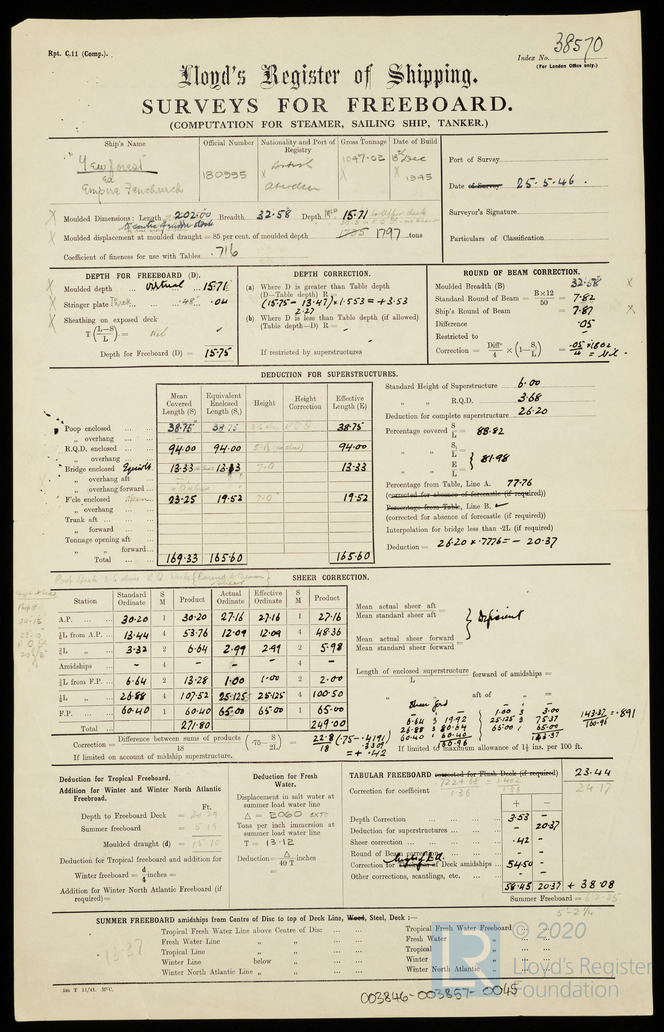 Rpt. C.11 (Comp.).
Index No. 38570
(For London Office only.)
Lloyd's Register of Shipping.
SURVEYS FOR FREEBOARD.
(COMPUTATION FOR STEAMER, SAILING SHIP, TANKER.)
Ship's Name
Official Number
Nationality and Port of Registry
Gross Tonnage
Date of Build
"Yewforest"
ex
Empire Fenchurch
180995
British
Aberdeen
1047.02
Dec
1945
Port of Survey
Date of Survey 25.5.46.
Surveyor's Signature
Particulars of Classification
Moulded Dimensions: Length 202.00 Breadth 32.58 Depth 15.71
Moulded displacement at moulded draught = 85 per cent. of moulded depth 1797 tons
Coefficient of fineness for use with Tables .716
DEPTH FOR FREEBOARD (D).
Moulded depth virtual 15.71
Stringer plate .48" .04
Sheathing on exposed deck
T (L-S/L) = Nil
Depth for Freeboard (D) = 15.75
DEPTH CORRECTION.
(a) Where D is greater than Table depth
(D—Table depth) R =
(15.75 - 13.47) × 1.553 = + 3.53
2.27
(b) Where D is less than Table depth (if allowed)
(Table depth—D) R =
If restricted by superstructures
ROUND OF BEAM CORRECTION.
Moulded Breadth (B) 32.58
Standard Round of Beam = B×12/50 = 7.82
Ship's Round of Beam = 7.87
Difference .05
Restricted to
Correction = Diffce/4 × (1-S₁/L) = .05/4 × .1802 = Nil.
DEDUCTION FOR SUPERSTRUCTURES.
Mean Covered Length (S)
Equivalent Enclosed Length (S₁)
Height
Height Correction
Effective Length (E)
Poop enclosed 38.75 38.75 38.75
„ overhang
R.Q.D. enclosed 94.00 94.00 94.00
„ overhang
Bridge enclosed 13.33 13.33 7.0 13.33
„ overhang aft
„ overhang forward
F'cle enclosed 23.25 19.52 7.0 19.52
„ overhang
Trunk aft
„ forward
Tonnage opening aft
„ „ forward
Total 169.33 165.60 165.60
Standard Height of Superstructure 6.00
„ „ R.Q.D. 3.68
Deduction for complete superstructure 26.20
Percentage covered S/L = 83.82
„ „ S₁/L =
„ „ E/L = } 81.98
Percentage from Table, Line A. 77.76
(corrected for absence of forecastle (if required))
Percentage from Table, Line B.
(corrected for absence of forecastle (if required))
Interpolation for bridge less than .2L (if required)
Deduction = 26.20 × .7776 = - 20.37
SHEER CORRECTION.
Station
Standard Ordinate
S M
Product
Actual Ordinate
Effective Ordinate
S M
Product
A.P. 30.20 1 30.20 27.16 27.16 1 27.16
⅙L from A.P. 13.44 4 53.76 12.09 12.09 4 48.36
⅓L „ 3.32 2 6.64 2.99 2.99 2 5.98
Amidships - 4 - - - 4 -
⅓L from F.P. 6.64 2 13.28 1.00 1.00 2 2.00
⅙L „ 26.88 4 107.52 25.125 25.125 4 100.50
F.P. 60.40 1 60.40 65.00 65.00 1 65.00
Total 271.80 249.00
Correction = Difference between sums of products/18 (.75 - S/2L) = 22.8/18 (.75-.4191) .3309
= + .42
If limited on account of midship superstructure.
Mean actual sheer aft
Mean standard sheer aft =
Mean actual sheer forward
Mean standard sheer forward =
} Deficient
Length of enclosed superstructure/L forward of amidships =
„ „ aft of „ =
Sheer ford
6.64 3 19.92
26.88 3 80.64
60.40 1 60.40
160.96
1.00 3 3.00
25.125 3 75.37
65.00 1 65.00
143.37
143.37/160.96 = .891
If limited to maximum allowance of 1½ ins. per 100 ft.
Deduction for Tropical Freeboard.
Addition for Winter and Winter North Atlantic Freeboard.
Ft.
Depth to Freeboard Deck =
Summer freeboard = 5.19
Moulded draught (d) = 15.10
Deduction for Tropical freeboard and addition for
Winter freeboard = d/4 inches =
Addition for Winter North Atlantic Freeboard (if required) =
Deduction for Fresh Water.
Displacement in salt water at summer load water line
Δ = 2060
Tons per inch immersion at summer load water line
T = 13.12
Deduction = Δ/40 T inches
=
TABULAR FREEBOARD corrected for Flush Deck (if required) 23.44
Correction for coefficient 24.17
1.36
+ -
Depth Correction 3.53 -
Deduction for superstructures - 20.37
Sheer correction .42 -
Round of Beam correction - -
Correction for of Deck amidships 54.50 -
Other corrections, scantlings, etc. - -
58.45 20.37 + 38.08
Summer Freeboard =
5'-2¼
SUMMER FREEBOARD amidships from Centre of Disc to top of Deck Line, Wood, Steel, Deck :—
Tropical Fresh Water Line above Centre of Disc
Fresh Water Line „ „
Tropical Line „ „
Winter Line below „
Winter North Atlantic Line „ „
Tropical Fresh Water Freeboard
Fresh Water „
Tropical „
Winter „
Winter North Atlantic „
13.37
© 2020
LR
Lloyd's Register
Foundation
003846-003857-0045